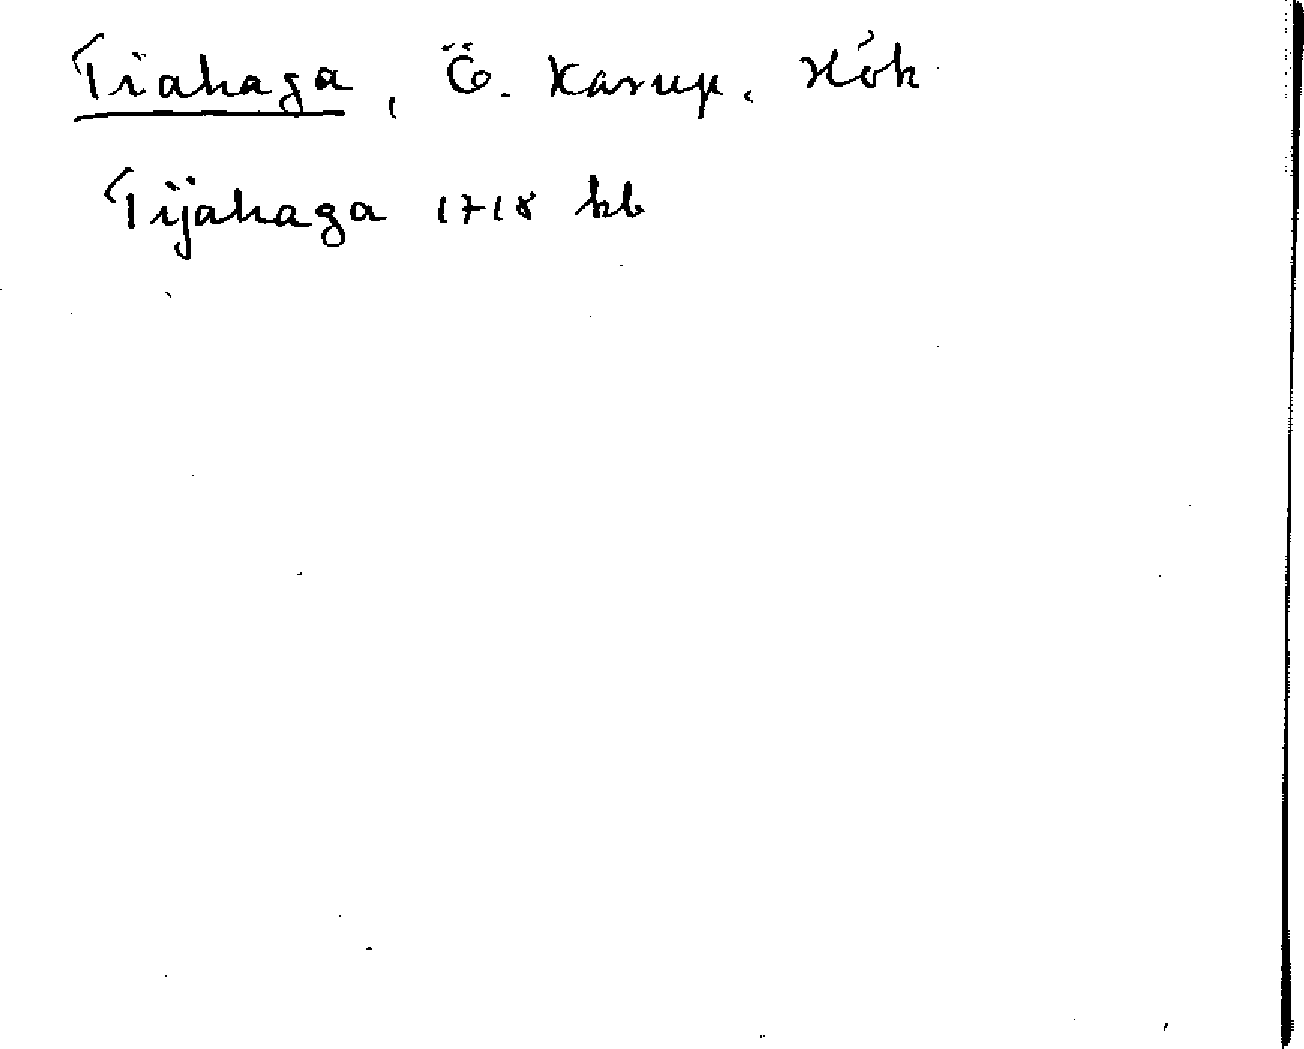 Tiahaga, Ö. Karup, Hök
Tijahaga 1718 kb